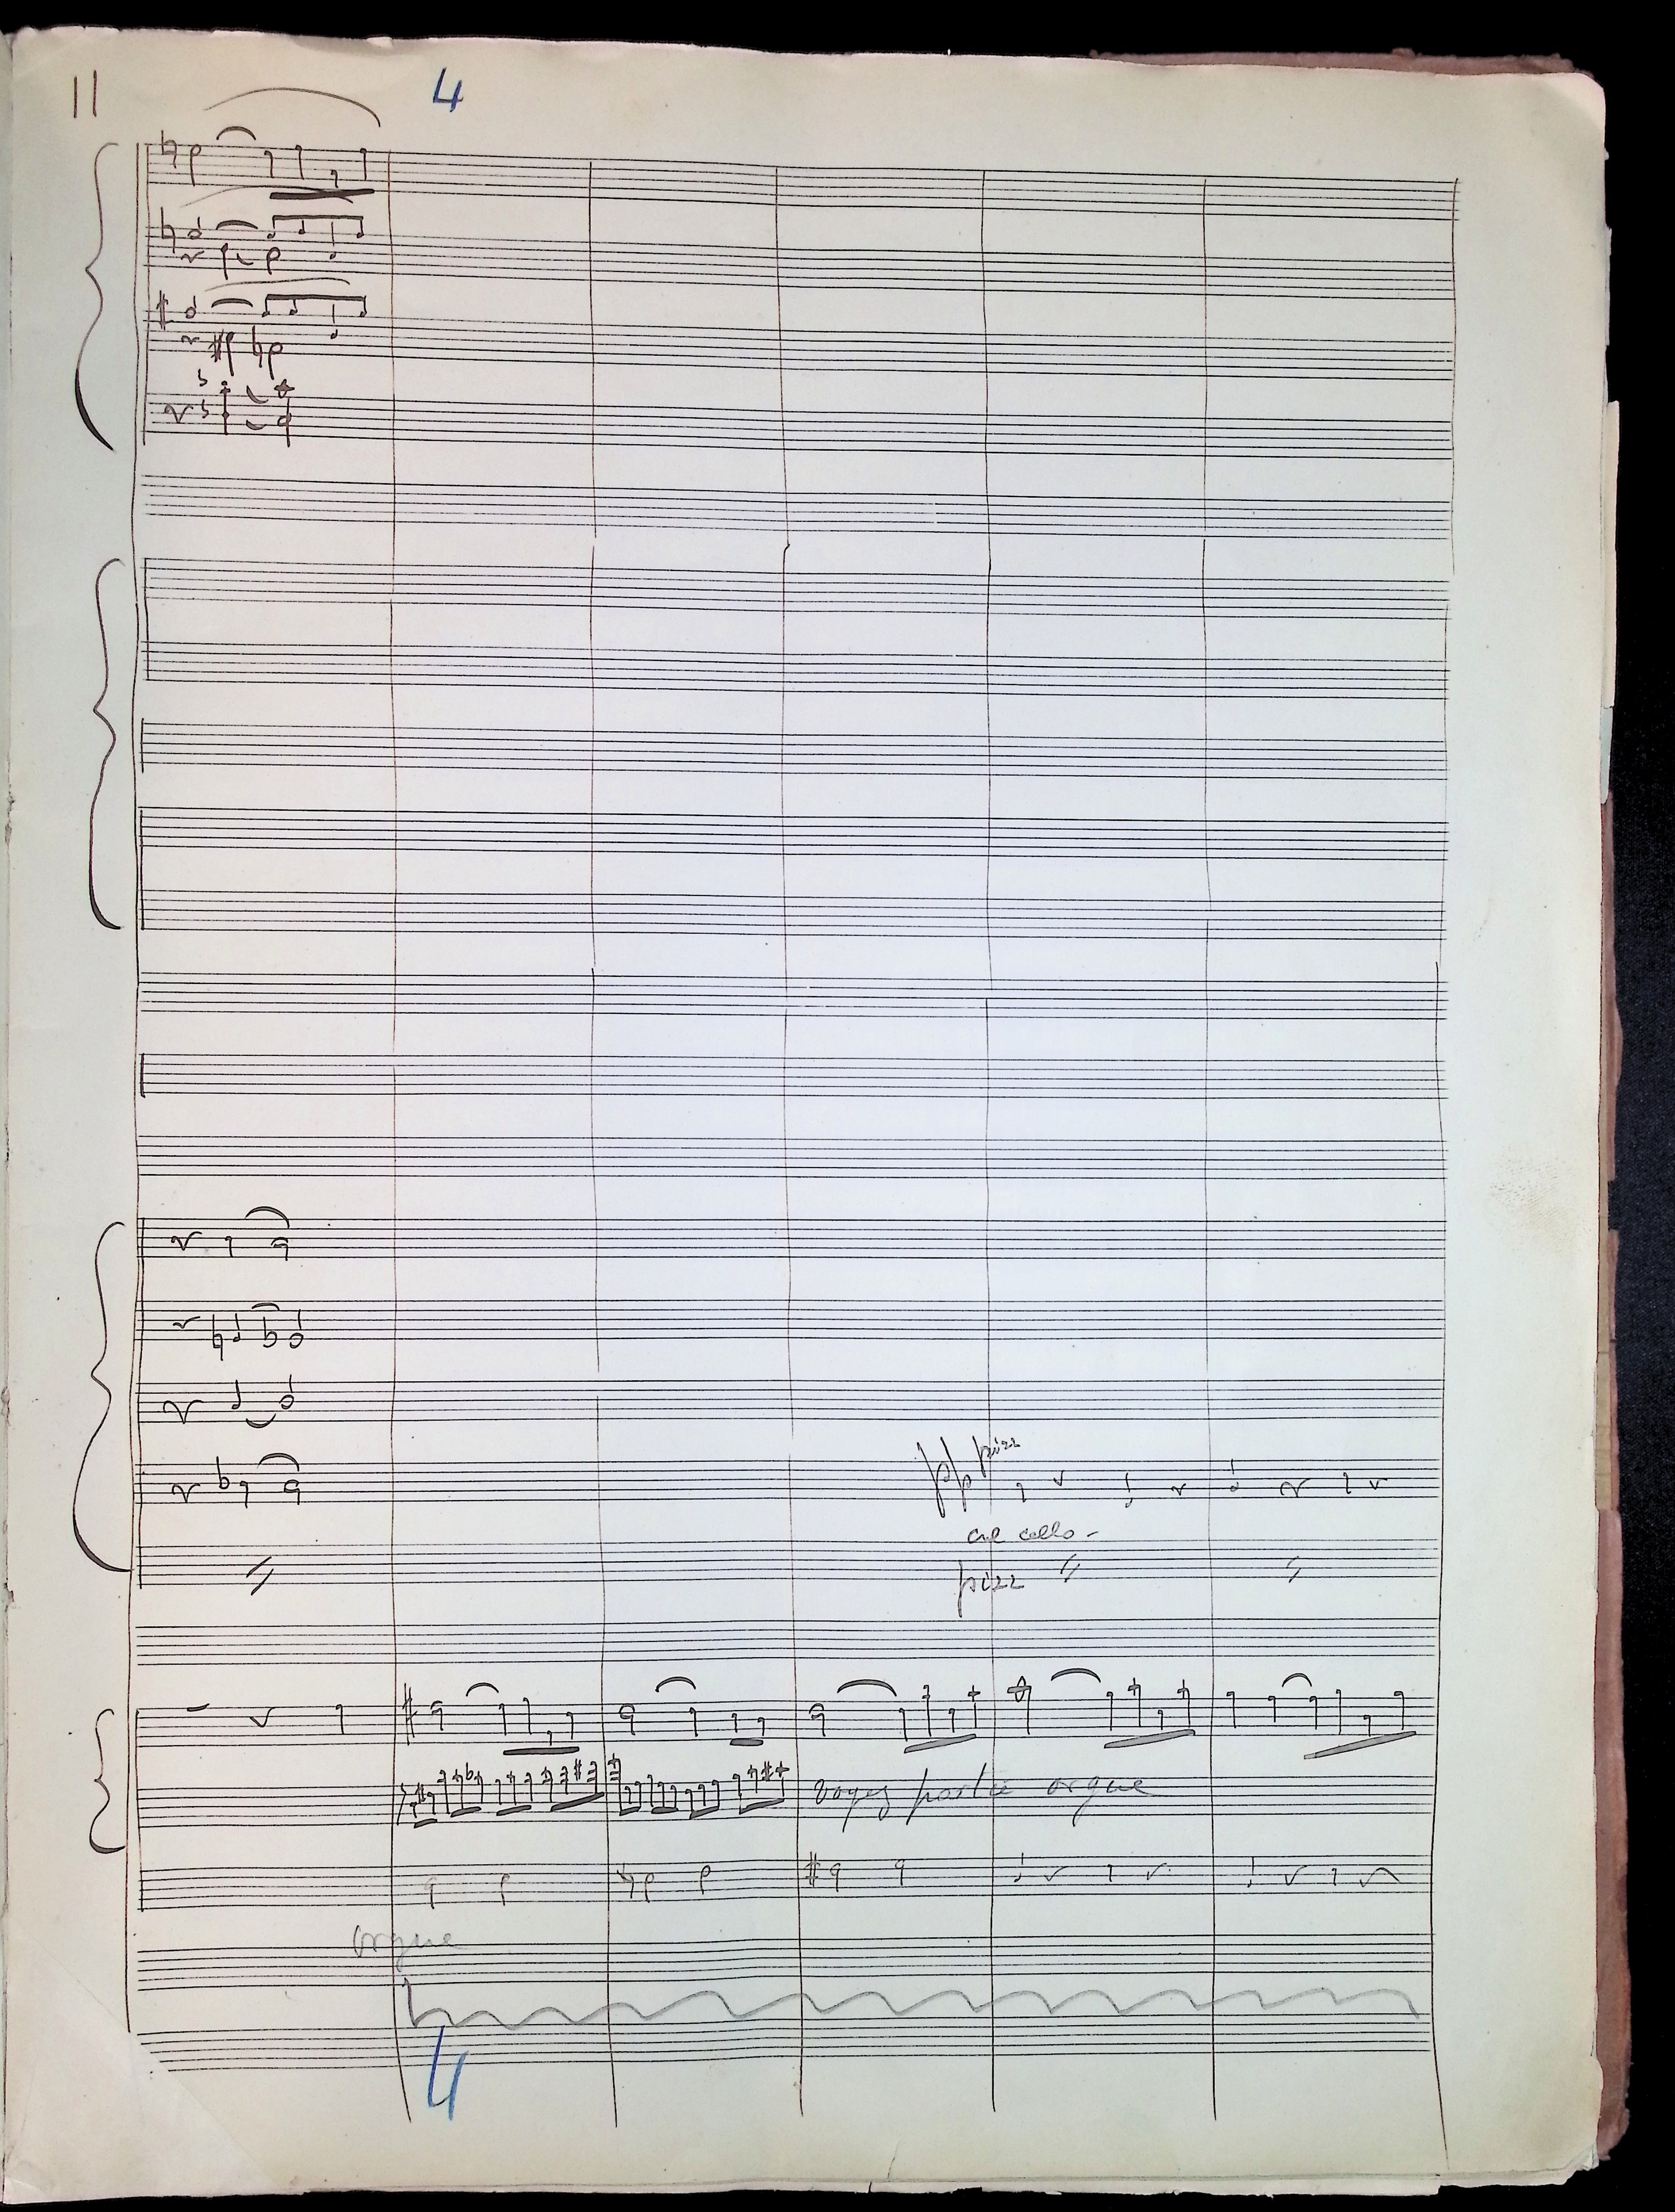 11
4
ppp pizz
col cello -
pizz
voyez partie orgue
orgue
4